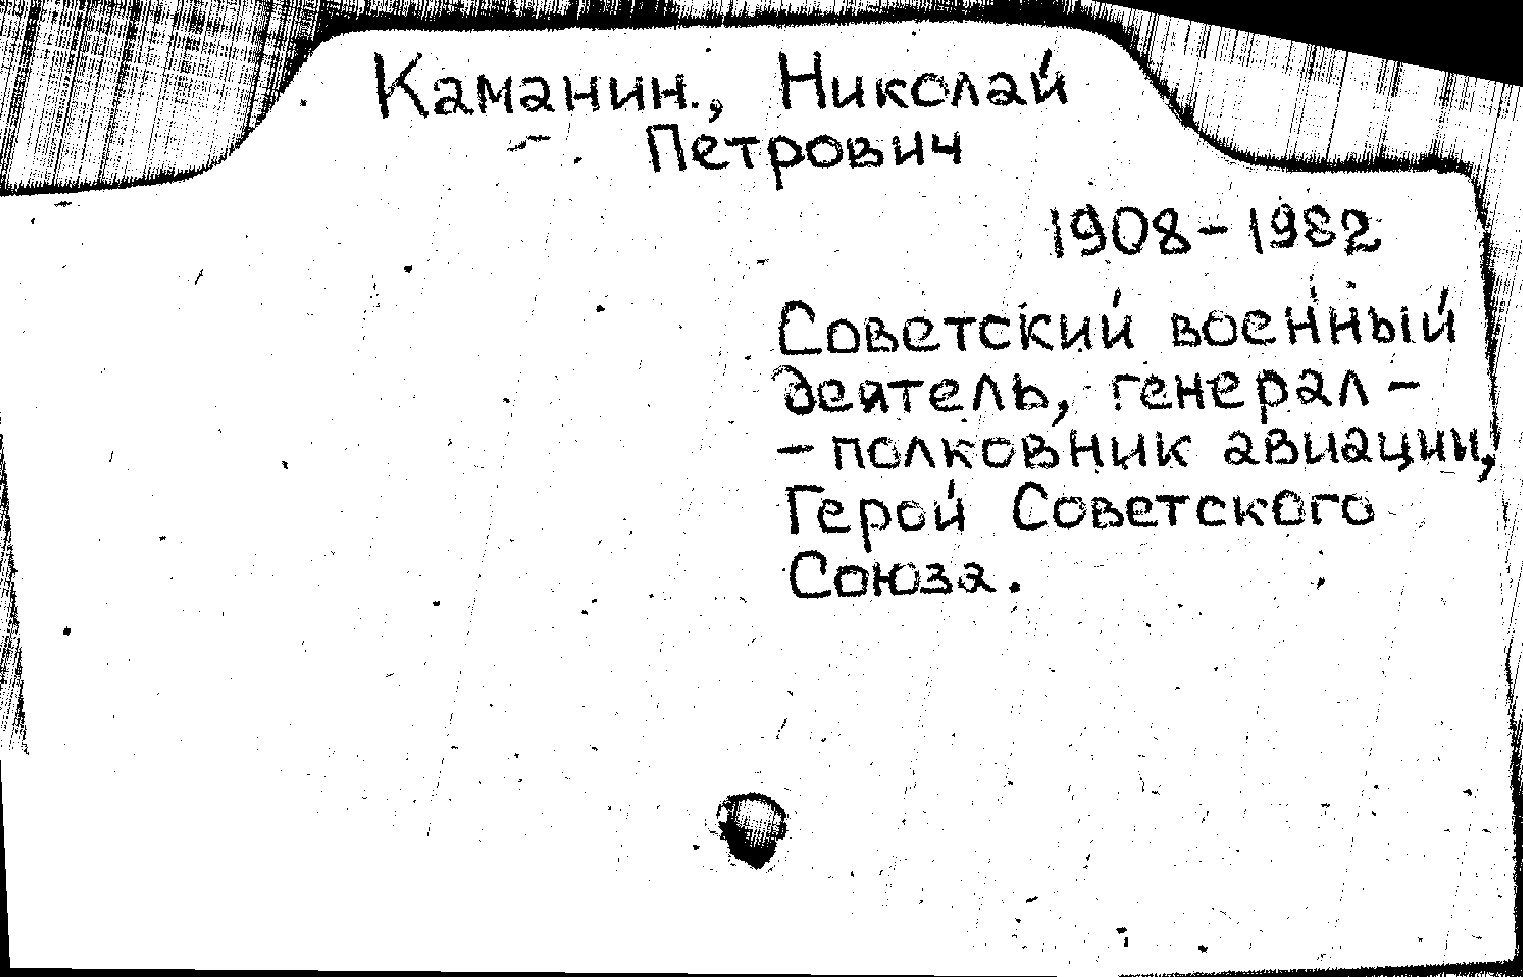 Каманин., Николай
Петрович
1908-1982
Советский военный
деятель, генерал -
- полковник авиации,
Герой Советского
Союза.